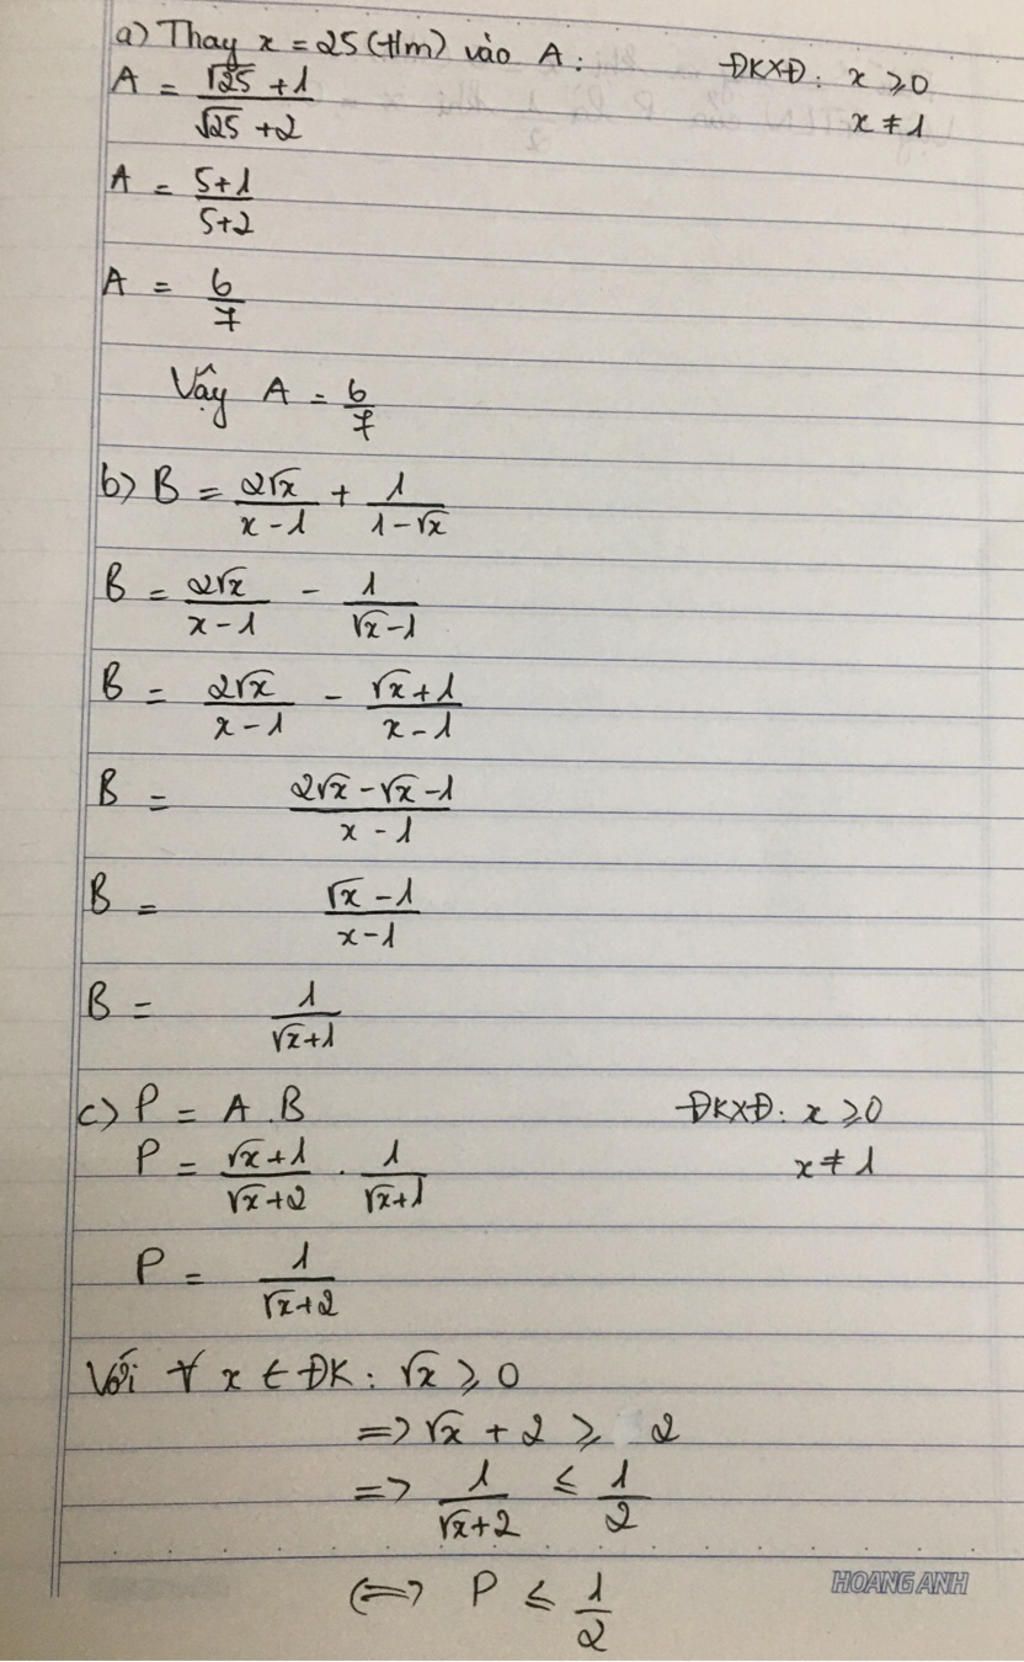 a) Thay x = 25 (t/m) vào A: ĐKXĐ: x ≥ 0
x ≠ 1
A = (√25 + 1)/(√25 + 2)
A = (5+1)/(5+2)
A = 6/7
Vậy A = 6/7
b) B = 2√x/(x - 1) + 1/(1 - √x)
B = 2√x/(x - 1) - 1/(√x - 1)
B = 2√x/(x - 1) - (√x + 1)/(x - 1)
B = (2√x - √x - 1)/(x - 1)
B = (√x - 1)/(x - 1)
B = 1/(√x + 1)
c) P = A . B ĐKXĐ: x ≥ 0
x ≠ 1
P = (√x + 1)/(√x + 2) . 1/(√x + 1)
P = 1/(√x + 2)
Với ∀ x ∈ ĐK: √x ≥ 0
=> √x + 2 ≥ 2
=> 1/(√x + 2) ≤ 1/2
<=> P ≤ 1/2
HOANG ANH